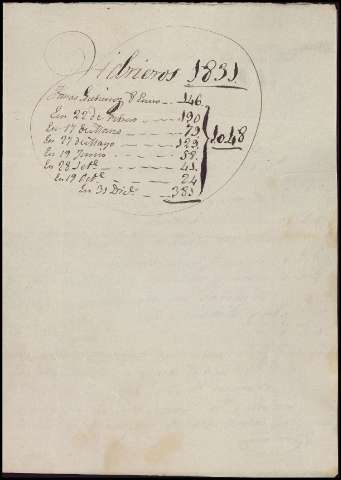 Vidrieros 1831.
Tomas Gutierrez 8 Enero 146.
En 22 de Febrero 190
En 17 de Marzo 79.
En 27 de Mayo 129.
En 19 Junio 58.
En 28 Set.e 41.
En 19 Oct.e 24
En 31 Dic.e 381.
1048